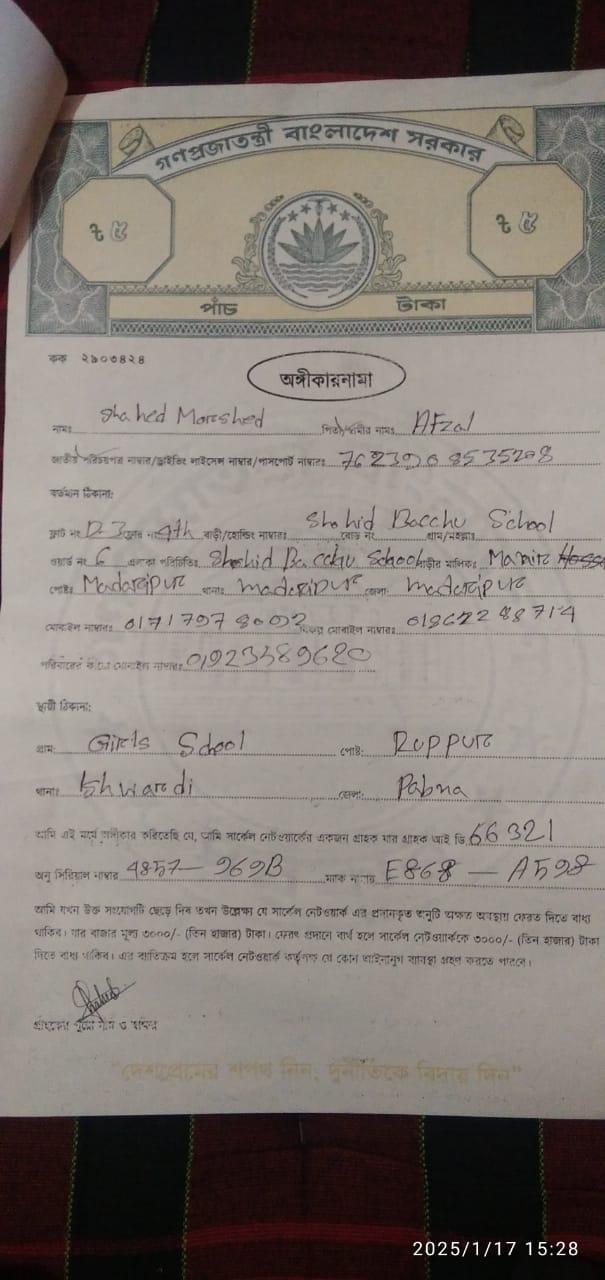 গণপ্রজাতন্ত্রী বাংলাদেশ সরকার
৳ ৫ ৳ ৫
পাঁচ টাকা
কক ২৯০৩৪২৪
অঙ্গীকারনামা
নামঃ Shahed Morshed পিতা/স্বামীর নামঃ AFzal
জাতীয় পরিচয়পত্র নাম্বার/ড্রাইভিং লাইসেন্স নাম্বার/পাসপোর্ট নাম্বারঃ
বর্তমান ঠিকানা:
ফ্লাট নং D-3 ফ্লোর নং 4th বাড়ী/হোল্ডিং নাম্বারঃ Shahid Bacchu School রোড নং গ্রাম/মহল্লাঃ
ওয়ার্ড নং 6 এলাকা পরিচিতিঃ Shohid Bacchu School বাড়ীর মালিকঃ
পোষ্টঃ Madaripur থানাঃ madaripur জেলা: madaripur
মোবাইল নাম্বারঃ বিকল্প মোবাইল নাম্বারঃ
পরিবারের মোবাইল নাম্বারঃ 01923389620
স্থায়ী ঠিকানা:
গ্রাম: Girls School পোষ্ট: Ruppur
থানাঃ Ishwardi জেলা: Pabna
আমি এই মর্মে অঙ্গীকার করিতেছি যে, আমি সার্কেল নেটওয়ার্কের একজন গ্রাহক যার গ্রাহক আই ডি 66321
অনু সিরিয়াল নাম্বার 4857-969B ম্যাক নাম্বার E868 - A598
আমি যখন উক্ত সংযোগটি ছেড়ে দিব তখন উল্লেক্ষ্য যে সার্কেল নেটওয়ার্ক এর প্রদানকৃত অনুটি অক্ষত অবস্থায় ফেরত দিতে বাধ্য
থাকিব। যার বাজার মূল্য ৩০০০/- (তিন হাজার) টাকা। ফেরৎ প্রদানে ব্যর্থ হলে সার্কেল নেটওয়ার্ককে ৩০০০/- (তিন হাজার) টাকা
দিতে বাধ্য থাকিব। এর ব্যতিক্রম হলে সার্কেল নেটওয়ার্ক কর্তৃপক্ষ যে কোন আইনানুগ ব্যবস্থা গ্রহণ করতে পারবে।
গ্রাহকের পুরো নাম ও স্বাক্ষর
"দেশপ্রেমের শপথ নিন, দুর্নীতিকে বিদায় দিন"
2025/1/17 15:28